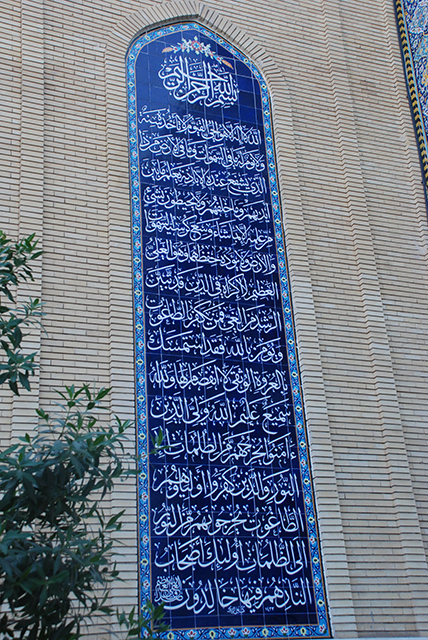 بسم الله الرحمن الرحيم
الله لا إله إلا هو الحي القيوم لا تأخذه سنة
ولا نوم له ما في السموات وما في الأرض من ذا
الذي يشفع عنده إلا بإذنه يعلم ما بين
أيديهم وما خلفهم ولا يحيطون بشيء
من علمه إلا بما شاء وسع كرسيه السموات
والأرض ولا يؤده حفظهما وهو العلي
العظيم لا إكراه في الدين قد تبين
الرشد من الغي فمن يكفر بالطاغوت
ويؤمن بالله فقد استمسك
بالعروة الوثقى لا انفصام لها والله
سميع عليم الله ولي الذين
ءامنوا يخرجهم من الظلمات إلى
النور والذين كفروا أولياؤهم
الطاغوت يخرجونهم من النور
إلى الظلمات أولئك أصحاب
النار هم فيها خالدون